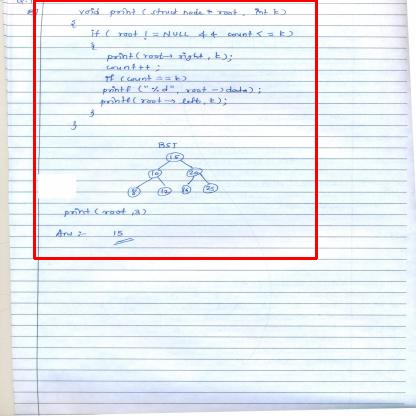 void print ( struct node * root, int k )
{
if ( root ! = NULL && count < = k )
{
print ( root → right, k );
count ++ ;
if ( count == k )
printf ( " % d", root -> data );
printf ( root -> left, k );
}
}
BST
15
10 20
8 12 18 25
print ( root, 3 )
Ans :- 15